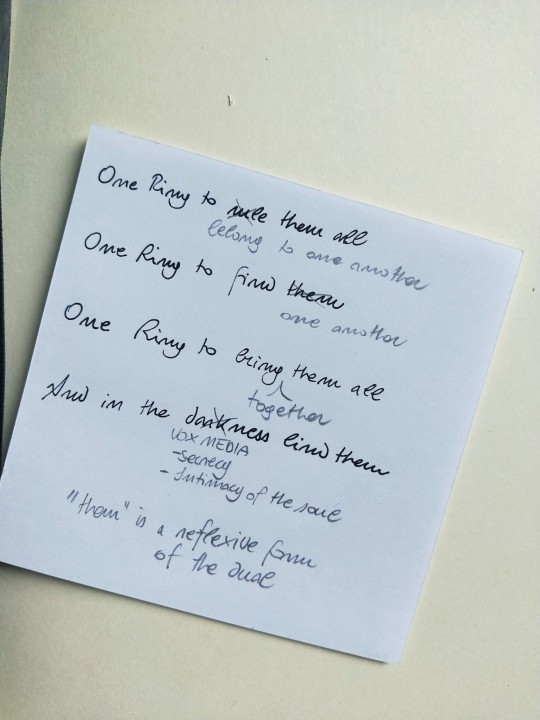 One Ring to rule them all
belong to one another
One Ring to find them
one another
One Ring to bring them all
together
And in the darkness bind them
VOX MEDIA
- Secrecy
- Intimacy of the soul
"them" is a reflexive form
of the dual